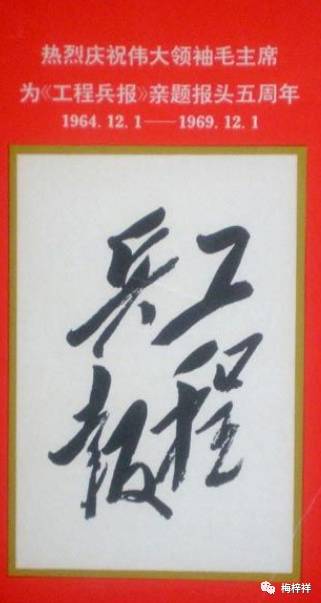 热烈庆祝伟大领袖毛主席
为《工程兵报》亲题报头五周年
1964.12.1——1969.12.1
工程
兵报
梅梓祥